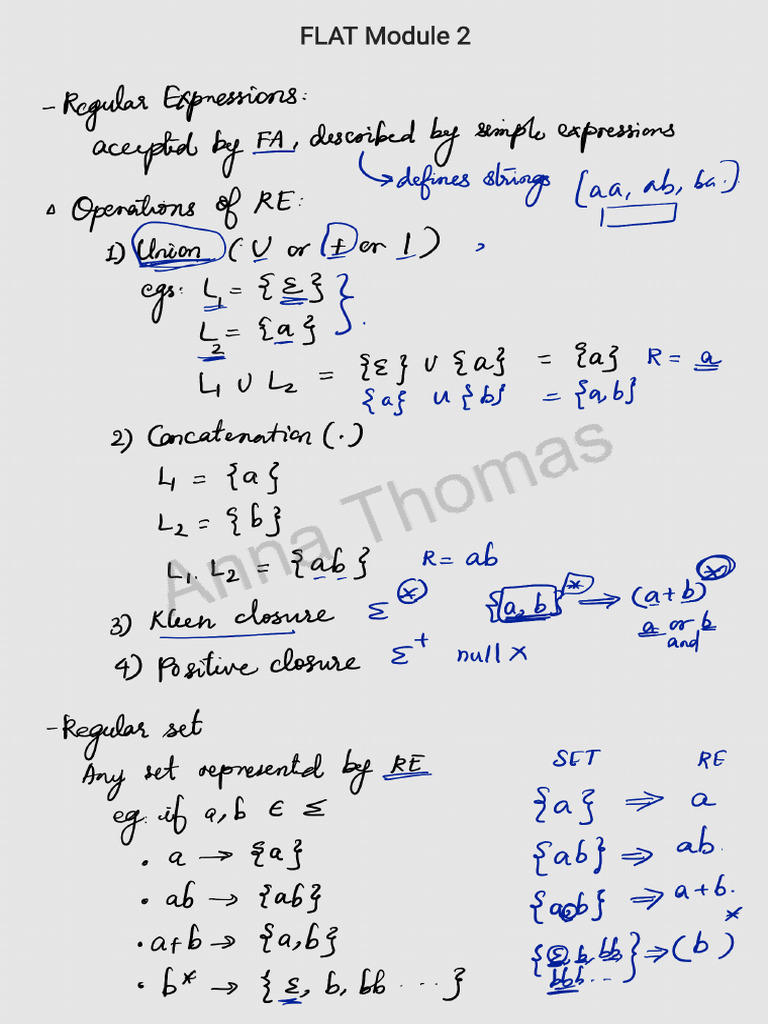 FLAT Module 2
- Regular Expressions:
accepted by FA, described by simple expressions
→ defines strings (aa, ab, ba..)
▵ Operations of RE:
1) Union (∪ or + or |) ,
egs: L₁ = {ε}
L₂ = {a}
L₁ ∪ L₂ = {ε} ∪ {a} = {a} R = a
{a} ∪ {b} = {a,b}
2) Concatenation (.)
L₁ = {a}
L₂ = {b}
L₁. L₂ = {ab} R = ab
3) Kleen closure Σ* {a, b}* ⇒ (a+b)*
a or b
and
4) Positive closure Σ⁺ null ×
- Regular set
Any set represented by RE
eg: if a, b ∈ Σ
• a → {a}
• ab → {ab}
• a+b → {a,b}
• b* → {ε, b, bb ...}
SET RE
{a} ⇒ a
{ab} ⇒ ab.
{a,b} ⇒ a+b.
{ε, b, bb, bbb...} ⇒ (b)*
Anna Thomas